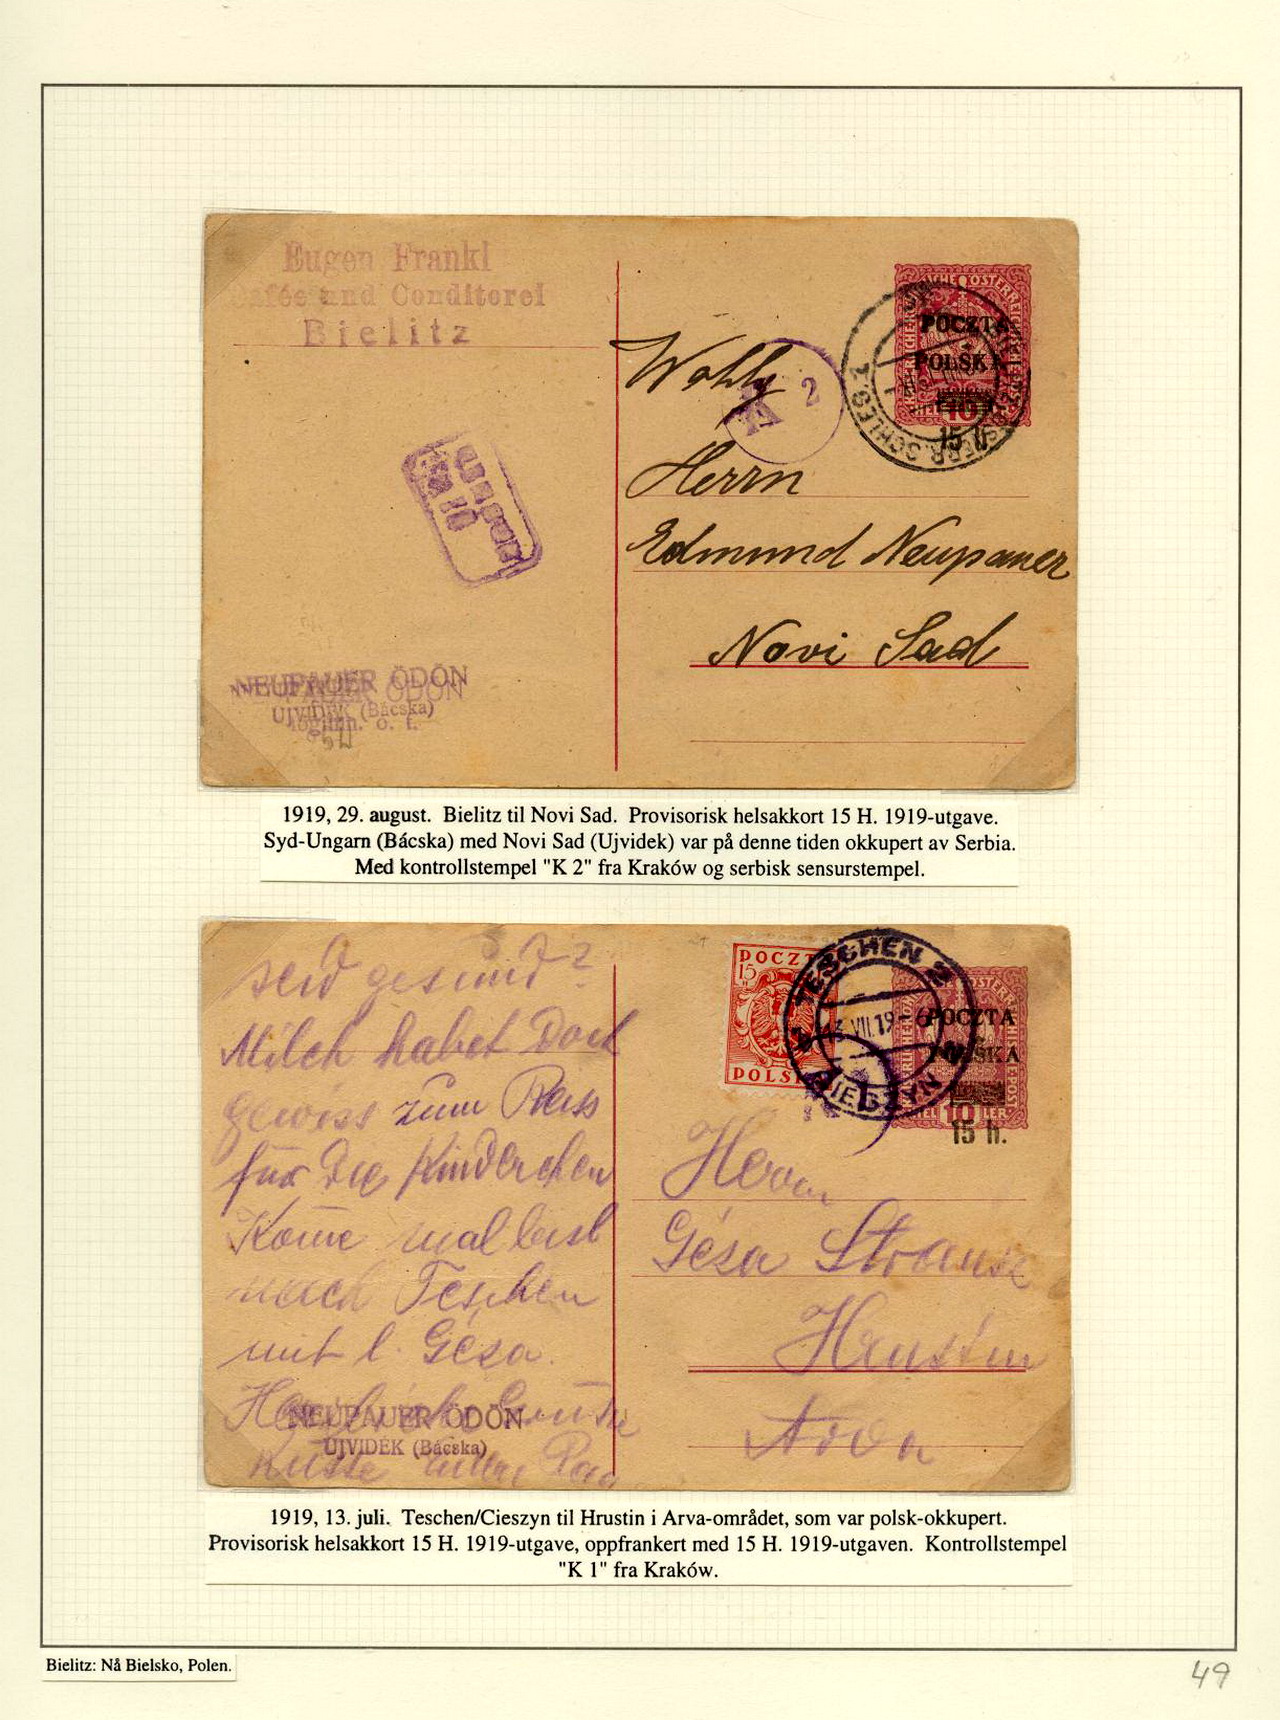 Eugen Frankl
Cafée und Conditorei
Bielitz
POCZTA
POLSKA
10
15 h.
K 2
Wohlg
Herrn
Edmund Neupauer
Novi Sad
NEUPAUER ÖDÖN
UJVIDÉK (Bácska)
1919, 29. august. Bielitz til Novi Sad. Provisorisk helsakkort 15 H. 1919-utgave.
Syd-Ungarn (Bácska) med Novi Sad (Ujvidek) var på denne tiden okkupert av Serbia.
Med kontrollstempel "K 2" fra Kraków og serbisk sensurstempel.
seid gesund?
Milch habet Doch
gewiss zum Reis
für Die Kinderchen
Kome mal
nach Teschen
mit l. Géza.
NEUPAUER ÖDÖN
UJVIDÉK (Bácska)
Küsse
POCZTA
15
POLSKA
TESCHEN 2
13 VII.19-6
CIESZYN
POCZTA
POLSKA
10
15 h.
Herrn
Géza Strauss
Hrustin
Arva
1919, 13. juli. Teschen/Cieszyn til Hrustin i Arva-området, som var polsk-okkupert.
Provisorisk helsakkort 15 H. 1919-utgave, oppfrankert med 15 H. 1919-utgaven. Kontrollstempel
"K 1" fra Kraków.
Bielitz: Nå Bielsko, Polen.
49